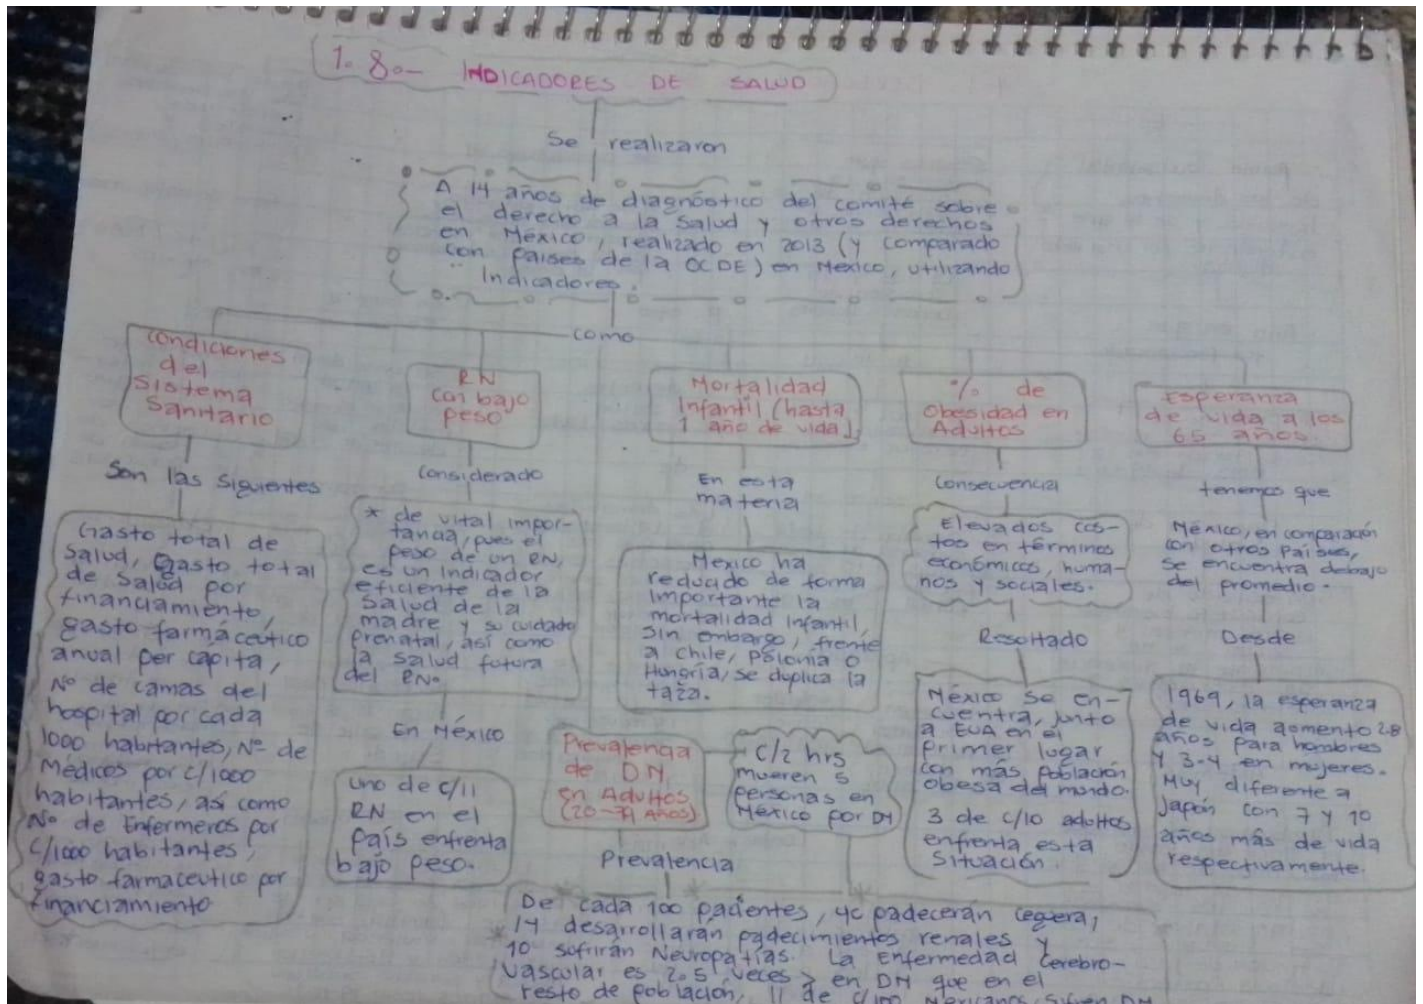 1.8.- INDICADORES DE SALUD
Se realizaron
A 14 años de diagnóstico del comité sobre
el derecho a la salud y otros derechos
en México, realizado en 2013 (y comparado
con países de la OCDE) en México, utilizando
Indicadores.
como
Condiciones
del
Sistema
Sanitario
Son las siguientes
Gasto total de
Salud, Gasto total
de Salud por
financiamiento,
gasto farmáceutico
anual per cápita,
Nº de camas del
hospital por cada
1000 habitantes, Nº de
Médicos por c/1000
habitantes, así como
Nº de Enfermeros por
c/1000 habitantes,
gasto farmaceutico por
financiamiento
RN
con bajo
peso
considerado
* de vital impor-
tancia, pues el
peso de un RN,
es un indicador
eficiente de la
salud de la
madre y su cuidado
prenatal, así como
la salud futura
del RN.
En México
uno de c/11
RN en el
país enfrenta
bajo peso.
Mortalidad
Infantil (hasta
1 año de vida)
En esta
materia
Mexico ha
reducido de forma
importante la
mortalidad infantil,
sin embargo, frente
a Chile, Polonia o
Hungría, se duplica la
taza.
Prevalencia
de DM
en Adultos
(20-79 Años)
c/2 hrs
mueren 5
personas en
México por DM
Prevalencia
De cada 100 pacientes, 40 padecerán ceguera,
14 desarrollarán padecimientos renales y
10 sufrirán Neuropatías. La enfermedad cerebro-
vascular es 2.5 veces > en DM que en el
resto de población, 11 de c/100 Mexicanos sufren DM
% de
Obesidad en
Adultos
Consecuencia
Elevados cos-
tos en términos
económicos, huma-
nos y sociales.
Resultado
México se en-
cuentra, junto
a EUA en el
primer lugar
con más población
obesa del mundo.
3 de c/10 adultos
enfrenta esta
situación.
Esperanza
de vida a los
65 años.
tenemos que
México, en comparación
con otros países,
se encuentra debajo
del promedio.
Desde
1969, la esperanza
de vida aumento 2.8
años para hombres
y 3.4 en mujeres.
Muy diferente a
Japón con 7 y 10
años más de vida
respectivamente.